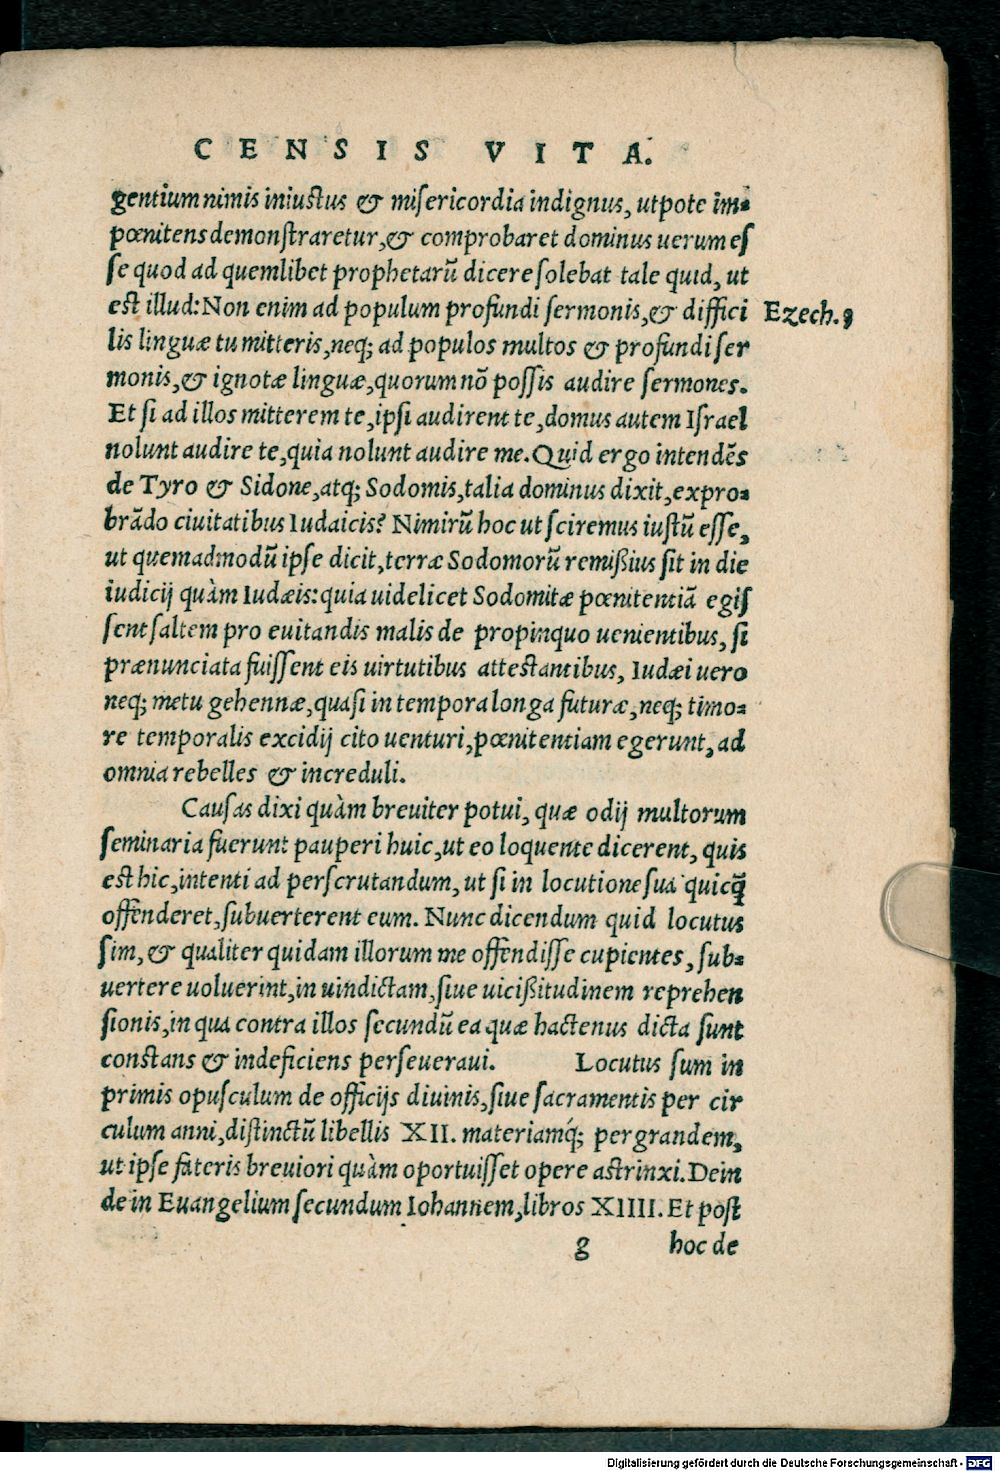 CENSIS VITA.
gentium nimis iniustus & misericordia indignus, utpote im-
pœnitens demonstraretur, & comprobaret dominus uerum es
se quod ad quemlibet prophetarũ dicere solebat tale quid, ut
est illud: Non enim ad populum profundi sermonis, & diffici
Ezech. 3
lis linguæ tu mitteris, neq; ad populos multos & profundi ser
monis, & ignotæ linguæ, quorum nõ possis audire sermones.
Et si ad illos mitterem te, ipsi audirent te, domus autem Israel
nolunt audire te, quia nolunt audire me. Quid ergo intendẽs
de Tyro & Sidone, atq; Sodomis, talia dominus dixit, expro-
brãdo ciuitatibus Iudaicis? Nimirũ hoc ut sciremus iustũ esse,
ut quemadmodũ ipse dicit, terræ Sodomorũ remißius sit in die
iudicij quàm Iudæis: quia uidelicet Sodomitæ pœnitentiã egis
sent saltem pro euitandis malis de propinquo uenientibus, si
prænunciata fuissent eis uirtutibus attestantibus, Iudæi uero
neq; metu gehennæ, quasi in tempora longa futuræ, neq; timo-
re temporalis excidij cito uenturi, pœnitentiam egerunt, ad
omnia rebelles & increduli.
Causas dixi quàm breuiter potui, quæ odij multorum
seminaria fuerunt pauperi huic, ut eo loquente dicerent, quis
est hic, intenti ad perscrutandum, ut si in locutione sua quicq̃
offenderet, subuerterent eum. Nunc dicendum quid locutus
sim, & qualiter quidam illorum me offendisse cupientes, sub-
uertere uoluerint, in uindictam, siue uicißitudinem reprehen
sionis, in qua contra illos secundũ ea quæ hactenus dicta sunt
constans & indeficiens perseueraui. Locutus sum in
primis opusculum de officijs diuinis, siue sacramentis per cir
culum anni, distinctũ libellis XII. materiamq́; pergrandem,
ut ipse fateris breuiori quàm oportuisset opere astrinxi. Dein
de in Euangelium secundum Iohannem, libros XIIII. Et post
g hoc de
Digitalisierung gefördert durch die Deutsche Forschungsgemeinschaft - DFG